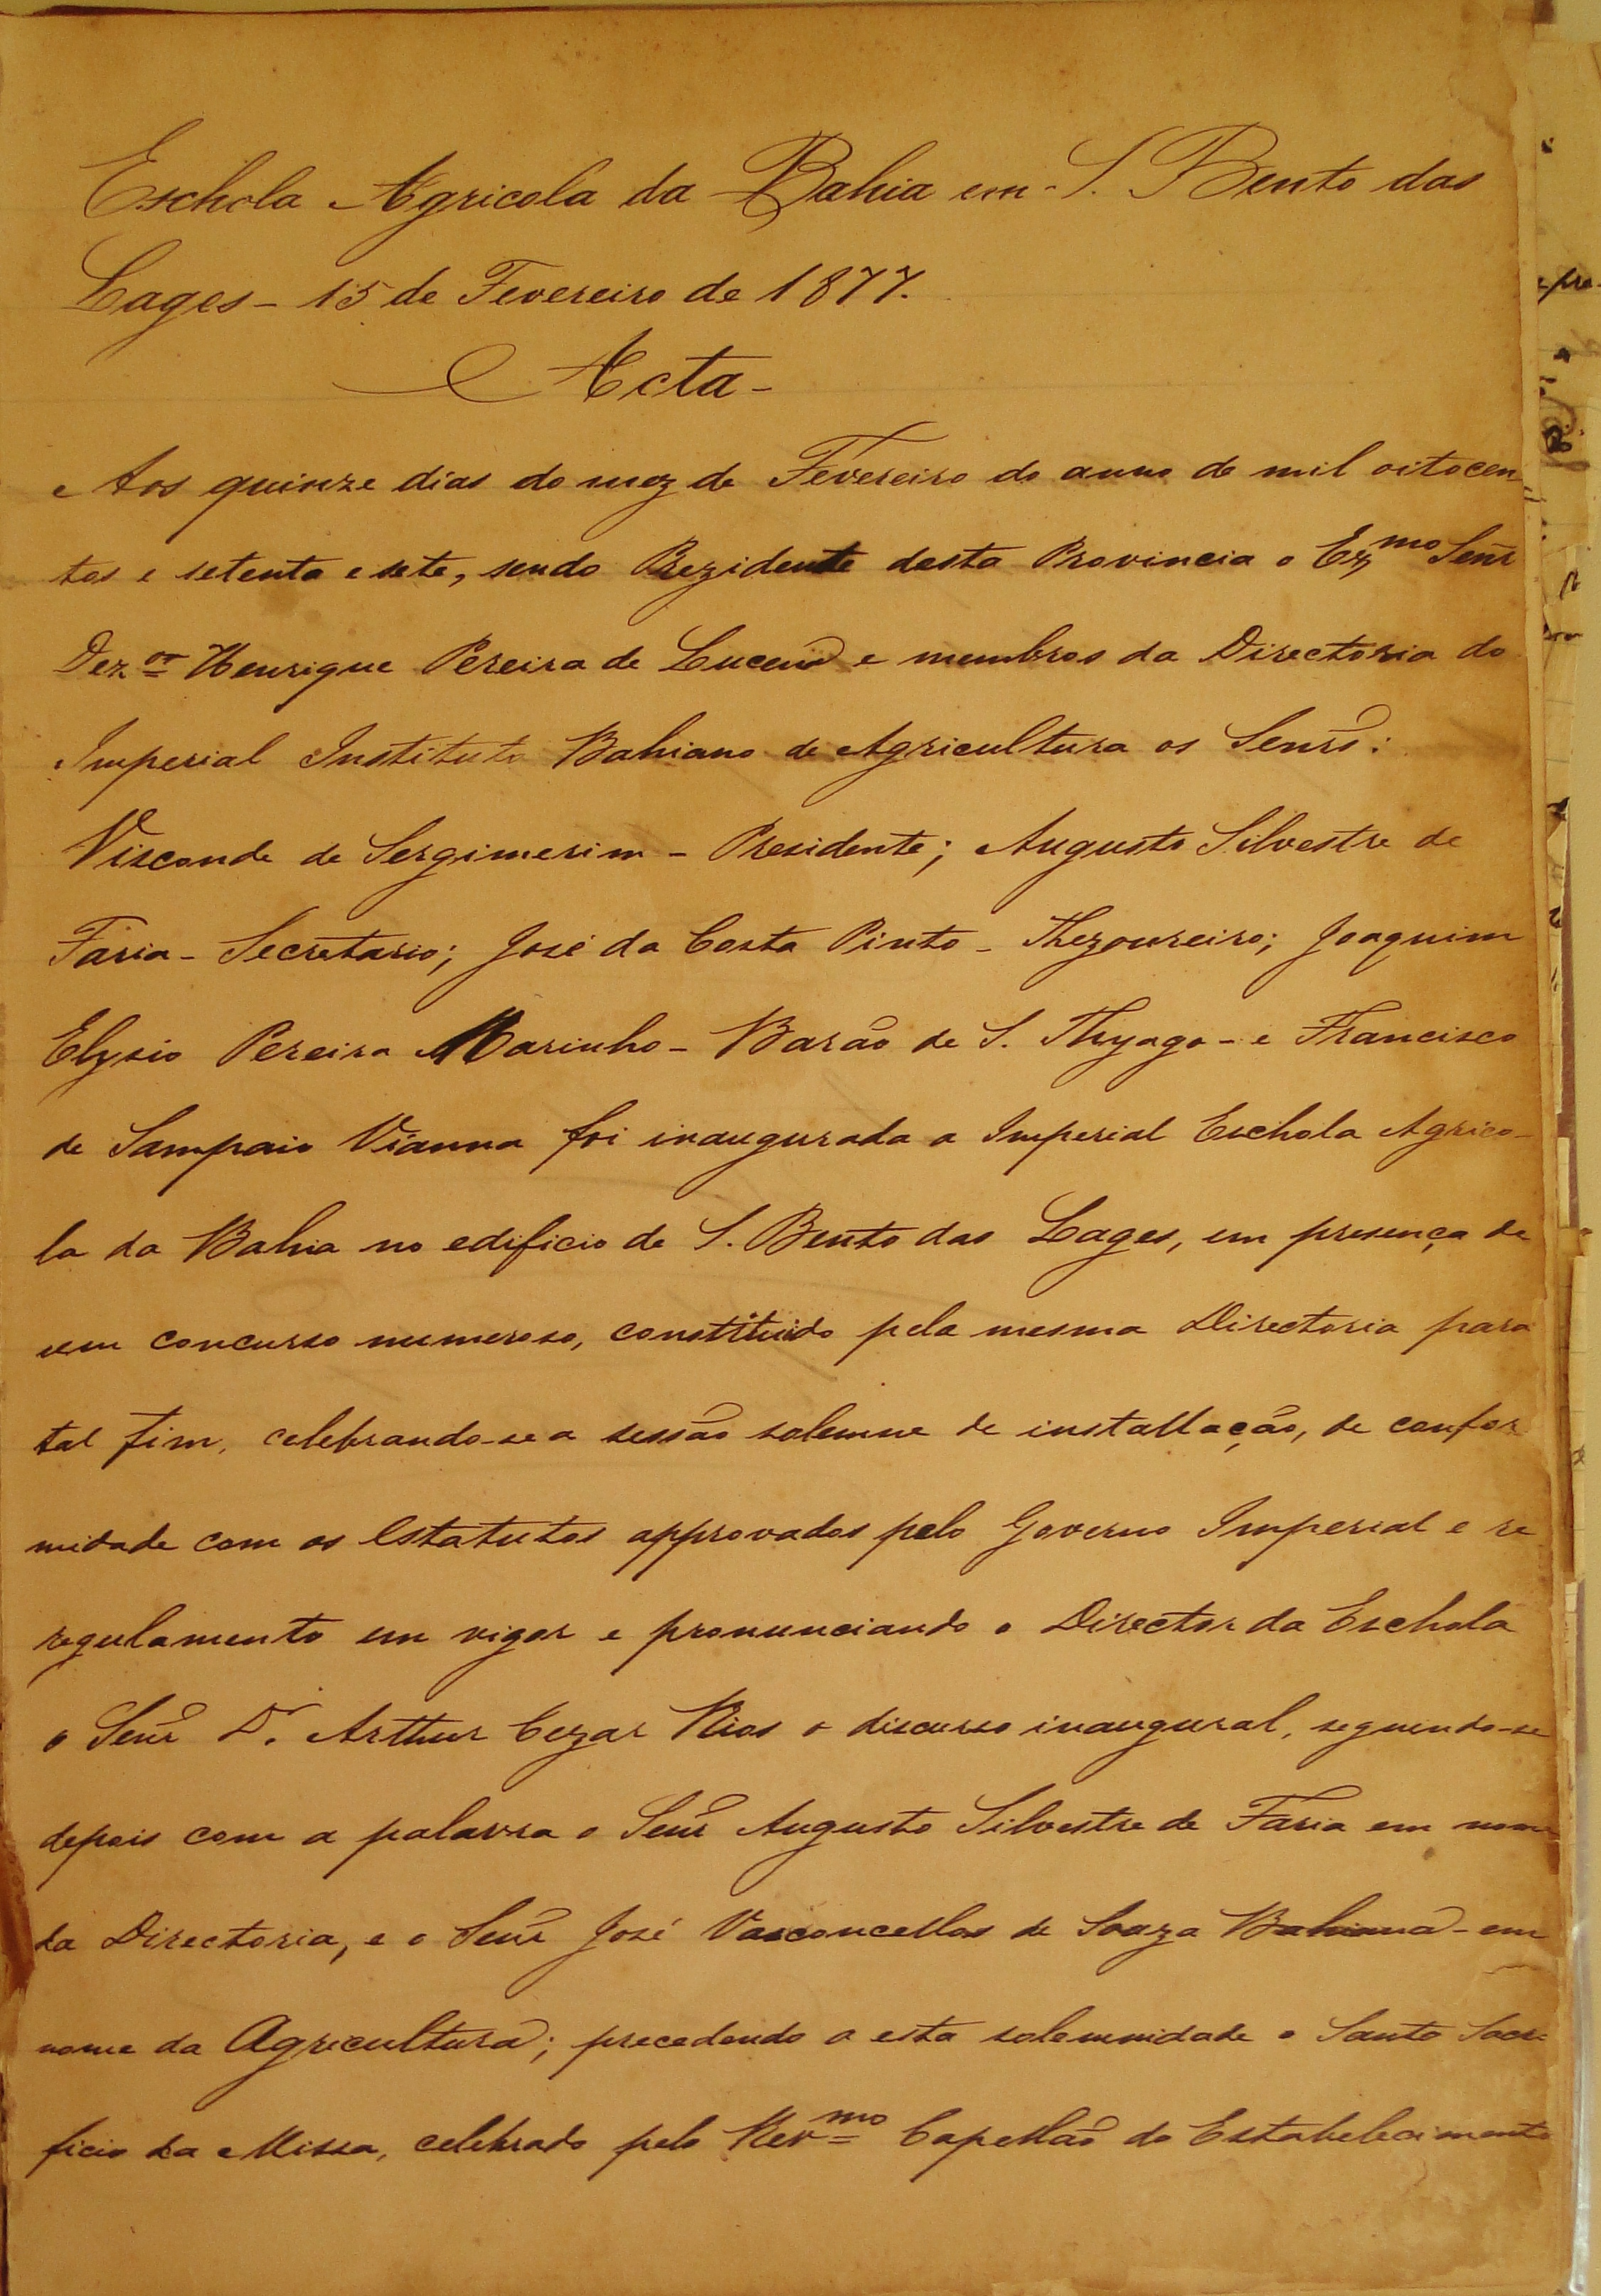 Eschola Agricola da Bahia em S. Bento das
Lages - 15 de Fevereiro de 1877.
Acta -
Aos quinze dias do mez de Fevereiro do anno de mil oitocen
tos e setenta e sete, sendo Prezidente desta Provincia o Exmo Senr
Dezor Henrique Pereira de Lucena e membros da Directoria do
Imperial Instituto Bahiano de Agricultura os Senrs:
Visconde de Sergimerim - Presidente; Augusto Silvestre de
Faria - Secretario; José da Costa Pinto - Thezoureiro; Joaquim
Elysio Pereira Marinho - Barão de S. Thyago - e Francisco
de Sampaio Vianna foi inaugurada a Imperial Eschola Agrico-
la da Bahia no edificio de S. Bento das Lages, em presença de
um concurso numeroso, constituido pela mesma Directoria para
tal fim, celebrando-se a sessão solemne de installação, de confor
midade com os Estatutos approvados pelo Governo Imperial e re
regulamento em vigor e pronunciando o Director da Eschola
o Senr Dr. Arthur Cezar Rios o discurso inaugural, seguindo-se
depois com a palavra o Senr Augusto Silvestre de Faria em nome
da Directoria, e o Senr José Vasconcellos de Souza Bahiana - em
nome da Agricultura; precedendo a esta solemnidade o Santo Sacri
ficio da Missa, celebrado pelo Revmo Capellão do Estabelecimento